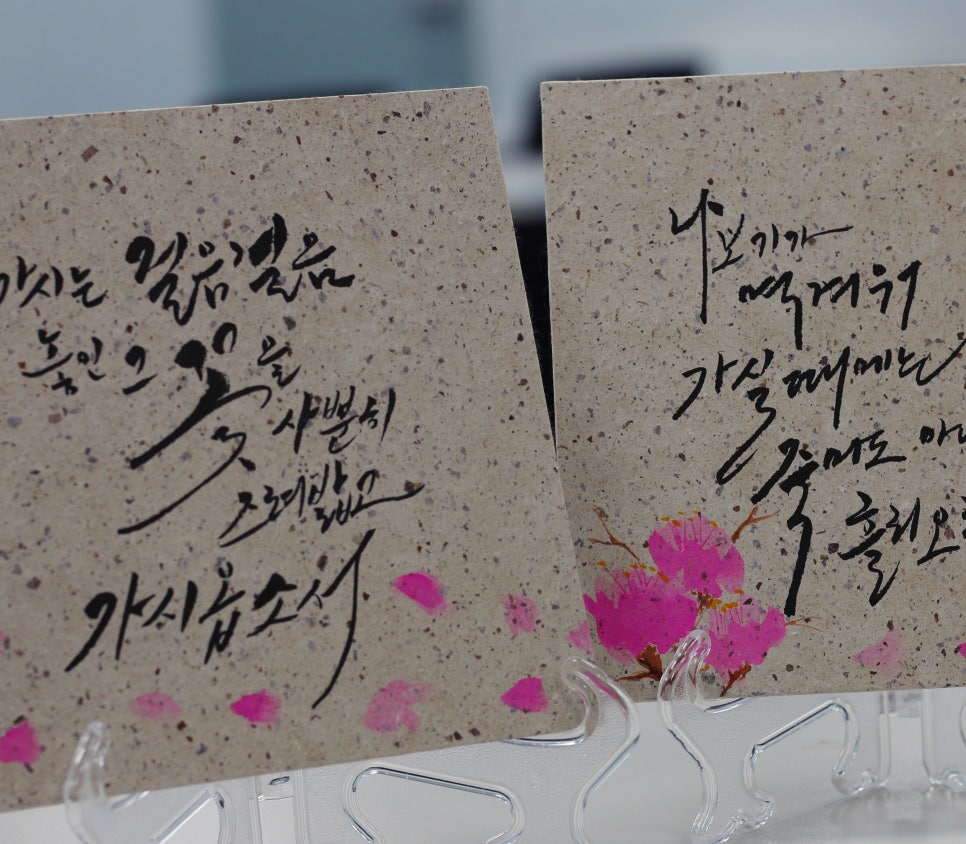 가시는 걸음걸음
놓인 그 꽃을
사뿐히
즈려밟고
가시옵소서
나 보기가
역겨워
가실 때에는
죽어도 아니
흘리오